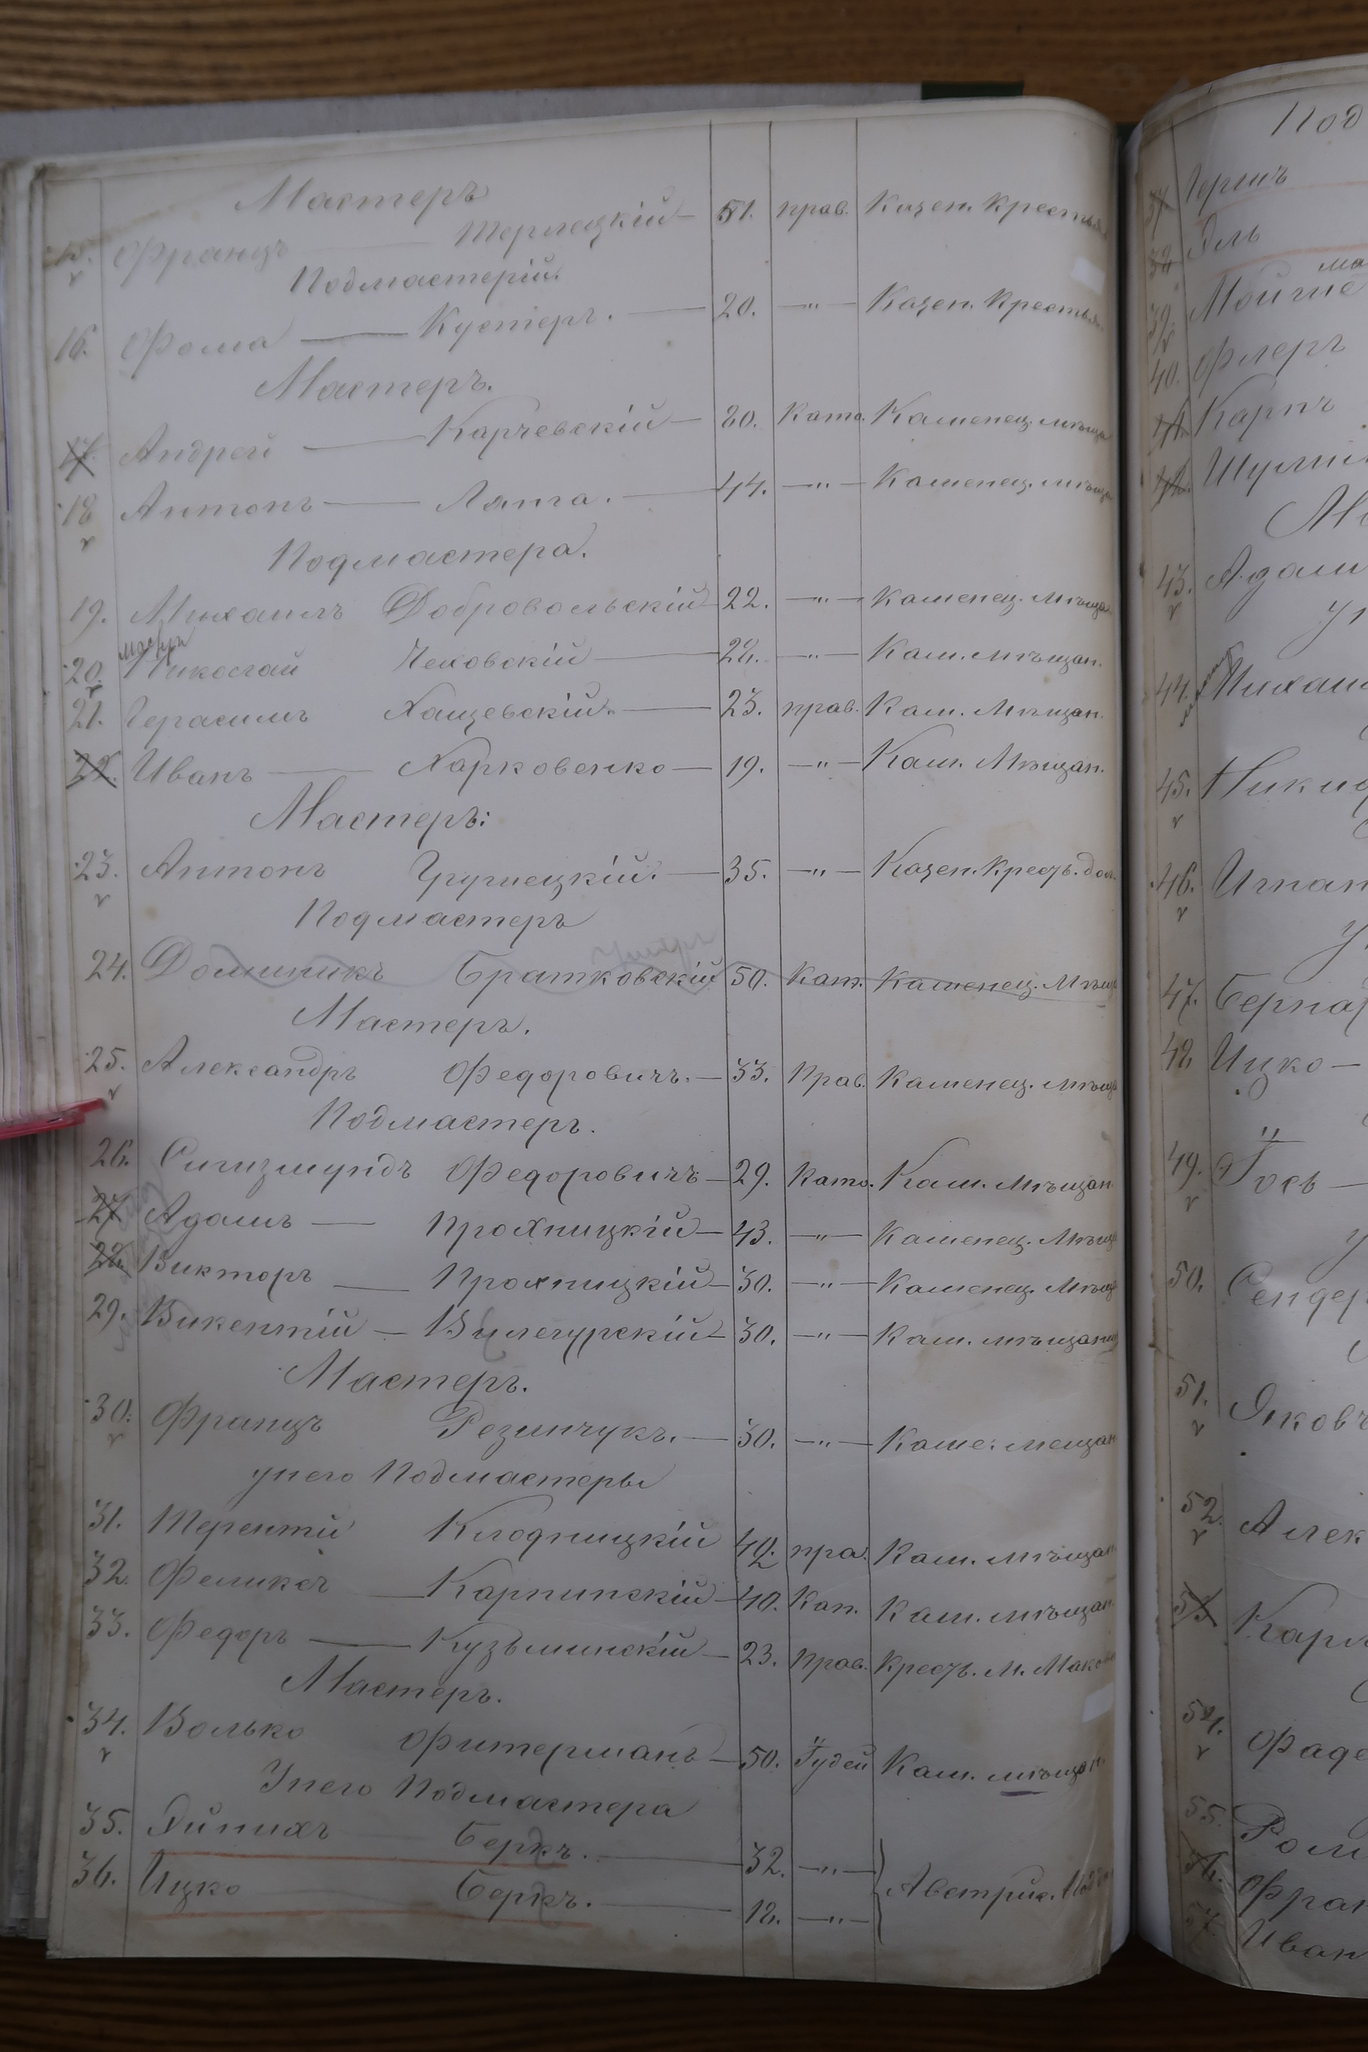 Мастеръ
15. Францъ Терлецкій 51. прав. Казен. Крестья
Подмастерій.
16. Фома Кустерь. 20. —„— Казен. Крестья
Мастеръ.
17. Андрей Карчевскій 20. Като. Каменец. мѣща
18 Антонъ Лята. 44. —„— Каменец. мѣща
Подмастера.
19. Михаилъ Добровольскій 22. —„— Каменец. Мѣща
20. Николай Чеховскій 22. —„— Кам. мѣщан.
21. Герасимъ Хащевскій 23. прав. Кам. Мѣщан.
22. Иванъ Харковенко 19. —„— Кам. Мѣщан.
Мастеръ:
23. Антонъ 35. —„— Казен. Крест.
Подмастеръ
24. Доминикъ Братковскій 50. Кат. Каменец. Мѣщ
Мастеръ.
25. Александръ Федоровичъ. 33. Прав. Каменец. мѣща
Подмастеръ.
26. Сигизмундъ Федоровичъ 29. Като. Кам. Мѣщан
27. Адамъ Прохницкій 43. —„— Каменец. Мѣща
28. Викторъ Прохницкій 30. —„— Каменец. Мѣща
29. Викентій 30. —„— Кам. мѣщан
Мастеръ.
30. Францъ Резинчукъ. 30. —„— Каме. мещан
у него Подмастеры
31. Терентій Клодницкій пра. Кам. мѣщан
32. Феликсъ Карпинскій 40. Кат. Кам. мѣщан.
33. Федоръ Кузьминскій 23. Прав. Крест. М. Маков
Мастеръ.
34. Волько Фитерманъ 50. Іудей Кам. мѣщан.
У него Подмастера
35. Беркъ. 32. —„—
36. Ицко Беркъ. 12. —„— Австрійс.
Под
37
38 Эль
39.
40. Флеръ
41. Карпъ
42.
43. Адам
44. Михаи
45. Ники
46. Игнат
47. Берна
48 Ицко
49. Іось
50. Сендер
51. Яковъ
52. Алек
53 Карл
54. Фаде
55. Ром
56. Фран
57. Иван